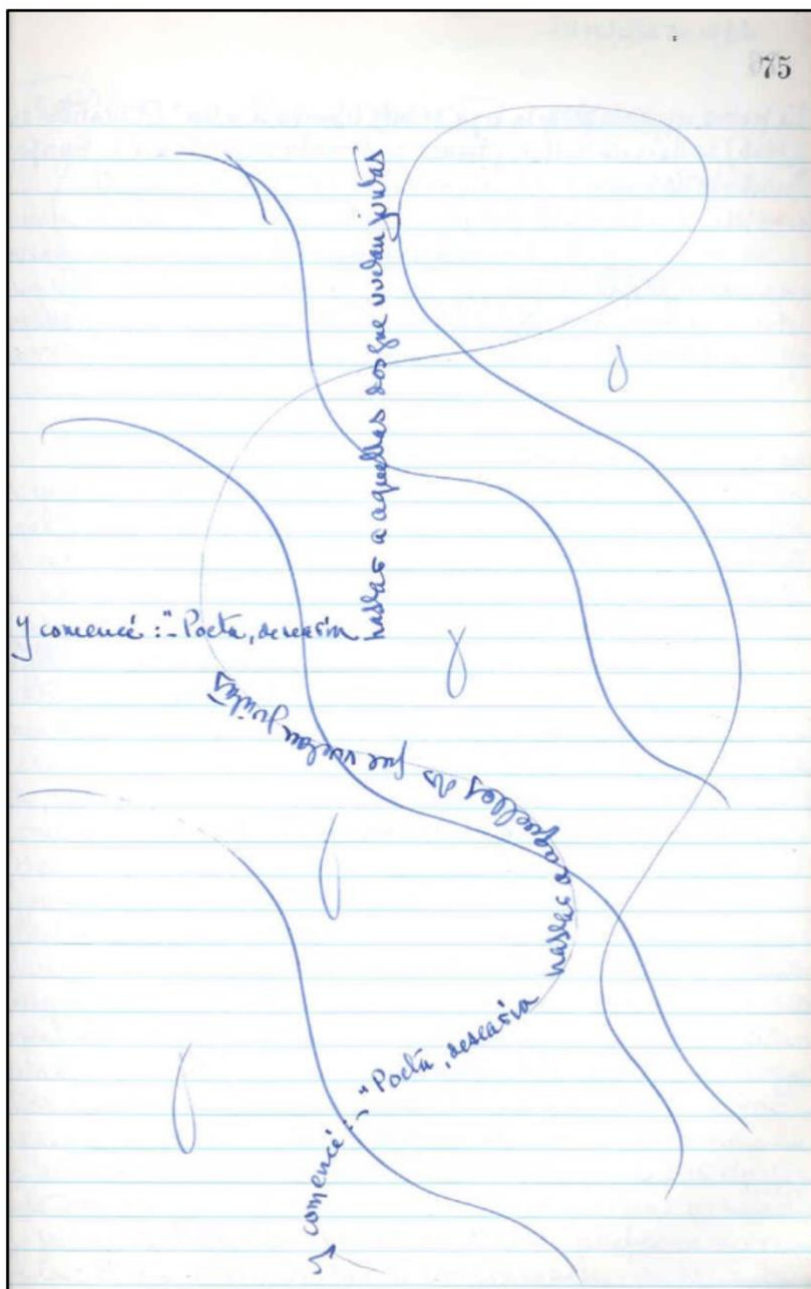 75
y comencé :"- Poeta, desearia
hablar a aquellas dos que vuelan juntas
y comencé :-" Poeta, desearia hablar a aquellas dos que vuelan juntas